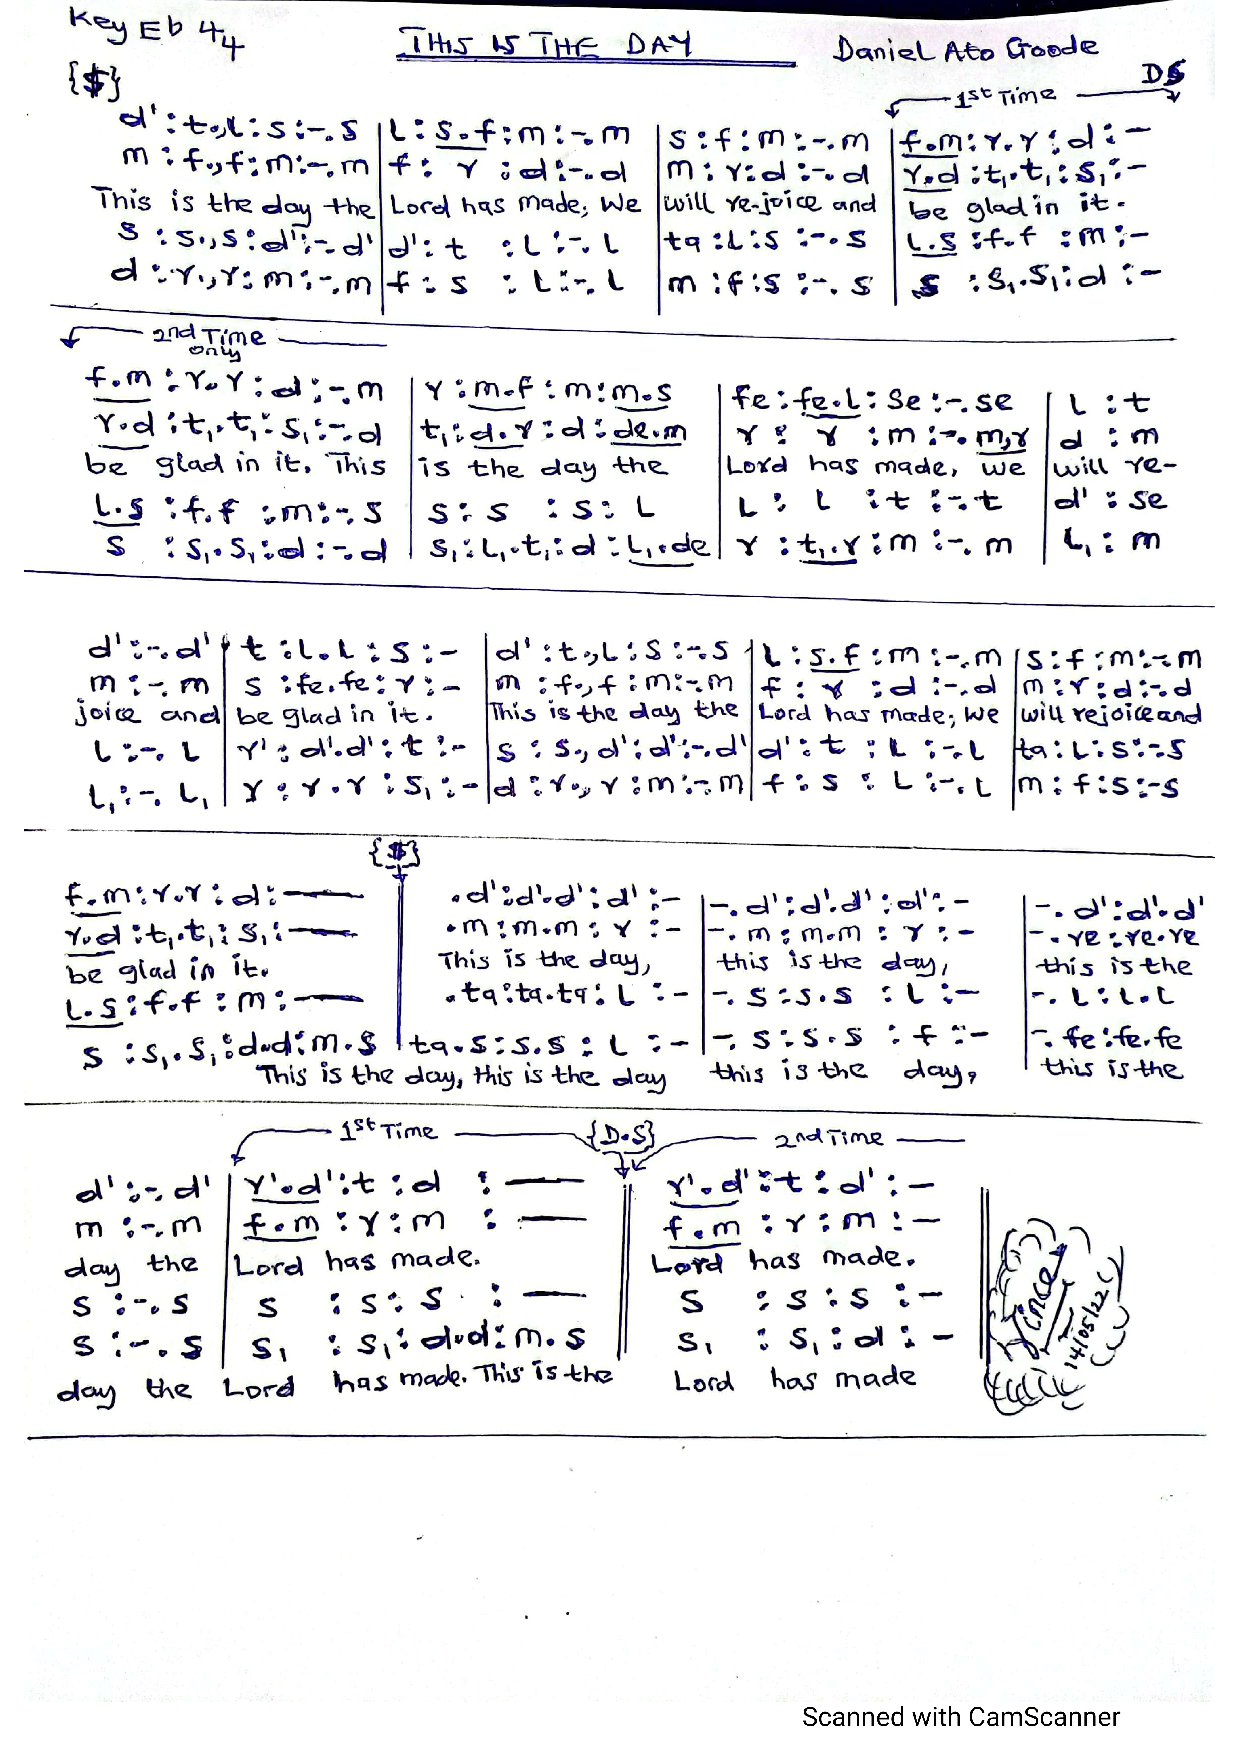 Key Eb 4/4
THIS IS THE DAY
Daniel Ato Goode
{$}
1st Time
DS
d' : t.,L : s :-. s | L : s.f : m :-. m | s : f : m :-. m | f.m : r.r : d : -
m : f.,f : m :-. m | f : r : d :-. d | m : r : d :-. d | r.d : t₁.t₁ : s₁ : -
This is the day the | Lord has made; We | will re-joice and | be glad in it.
s : s.,s : d' :-. d' | d' : t : L :-. L | ta : L : s :-. s | L.s : f.f : m : -
d : r.,r : m :-. m | f : s : L :-. L | m : f : s :-. s | s : s₁.s₁ : d : -
2nd Time only
f.m : r.r : d :-. m | r : m.f : m : m.s | fe : fe.L : se :-. se | L : t
r.d : t₁.t₁ : s₁ :-. d | t₁ : d.r : d : de.m | r : r : m :-. m,r | d : m
be glad in it. This | is the day the | Lord has made, we | will re-
L.s : f.f : m :-. s | s : s : s : L | L : L : t :-. t | d' : se
s : s₁.s₁ : d :-. d | s₁ : L₁.t₁ : d : L₁.de | r : t₁.r : m :-. m | L₁ : m
d' :-. d' | t : L.L : s : - | d' : t.,L : s :-. s | L : s.f : m :-. m | s : f : m :-. m
m :-. m | s : fe.fe : r : - | m : f.,f : m :-. m | f : r : d :-. d | m : r : d :-. d
joice and | be glad in it. | This is the day the | Lord has made; We | will rejoice and
L :-. L | r' : d'.d' : t : - | s : s., d' : d' :-. d' | d' : t : L :-. L | ta : L : s :-. s
L₁ :-. L₁ | r : r.r : s₁ : - | d : r., r : m :-. m | f : s : L :-. L | m : f : s :-s
{$}
f.m : r.r : d : — | .d' : d'.d' : d' : - | -. d' : d'.d' : d' : - | -. d' : d'.d'
r.d : t₁.t₁ : s₁ : — | .m : m.m : r : - | -. m : m.m : r : - | -. re : re.re
be glad in it. | This is the day, | this is the day, | this is the
L.s : f.f : m : — | .ta : ta.ta : L : - | -. s : s.s : L : - | -. L : L.L
s : s₁.s₁ : d.d : m.s | ta.s : s.s : L : - | -. s : s.s : f : - | -. fe : fe.fe
This is the day, this is the day this is the day, this is the
1st Time {D.S} 2nd Time
d' :-. d' | r'.d' : t : d : — || r'.d' : t : d' : - ||
m :-. m | f.m : r : m : — || f.m : r : m : - ||
day the | Lord has made. Lord has made.
s :-. s | s : s : s : — || s : s : s : - ||
s :-. s | s₁ : s₁ : d.d : m.s || s₁ : s₁ : d : - ||
day the Lord has made. This is the Lord has made
14/05/22
Scanned with CamScanner